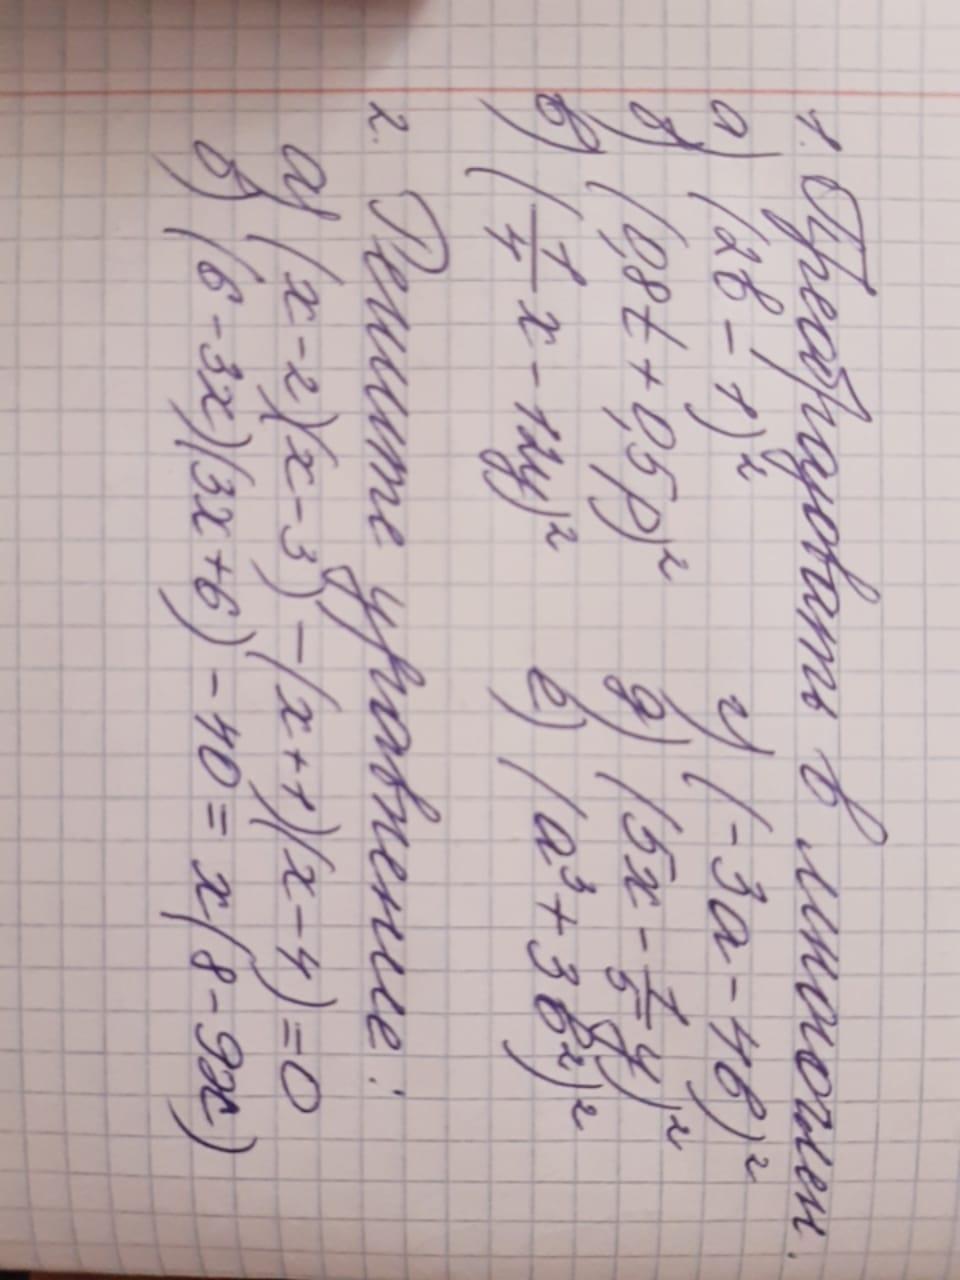 1. Преобразовать в многочлен.
а) (2в - 1)² г) (-3а - 4в)²
б) (0,8t + 0,5p)² д) (5x - 1/5 y)²
в) (1/4 x - 12y)² е) (а³ + 3в²)²
2. Решите уравнение:
а) (x - 2)(x - 3) - (x + 1)(x - 4) = 0
б) (6 - 3x)(3x + 6) - 40 = x(8 - 9x)